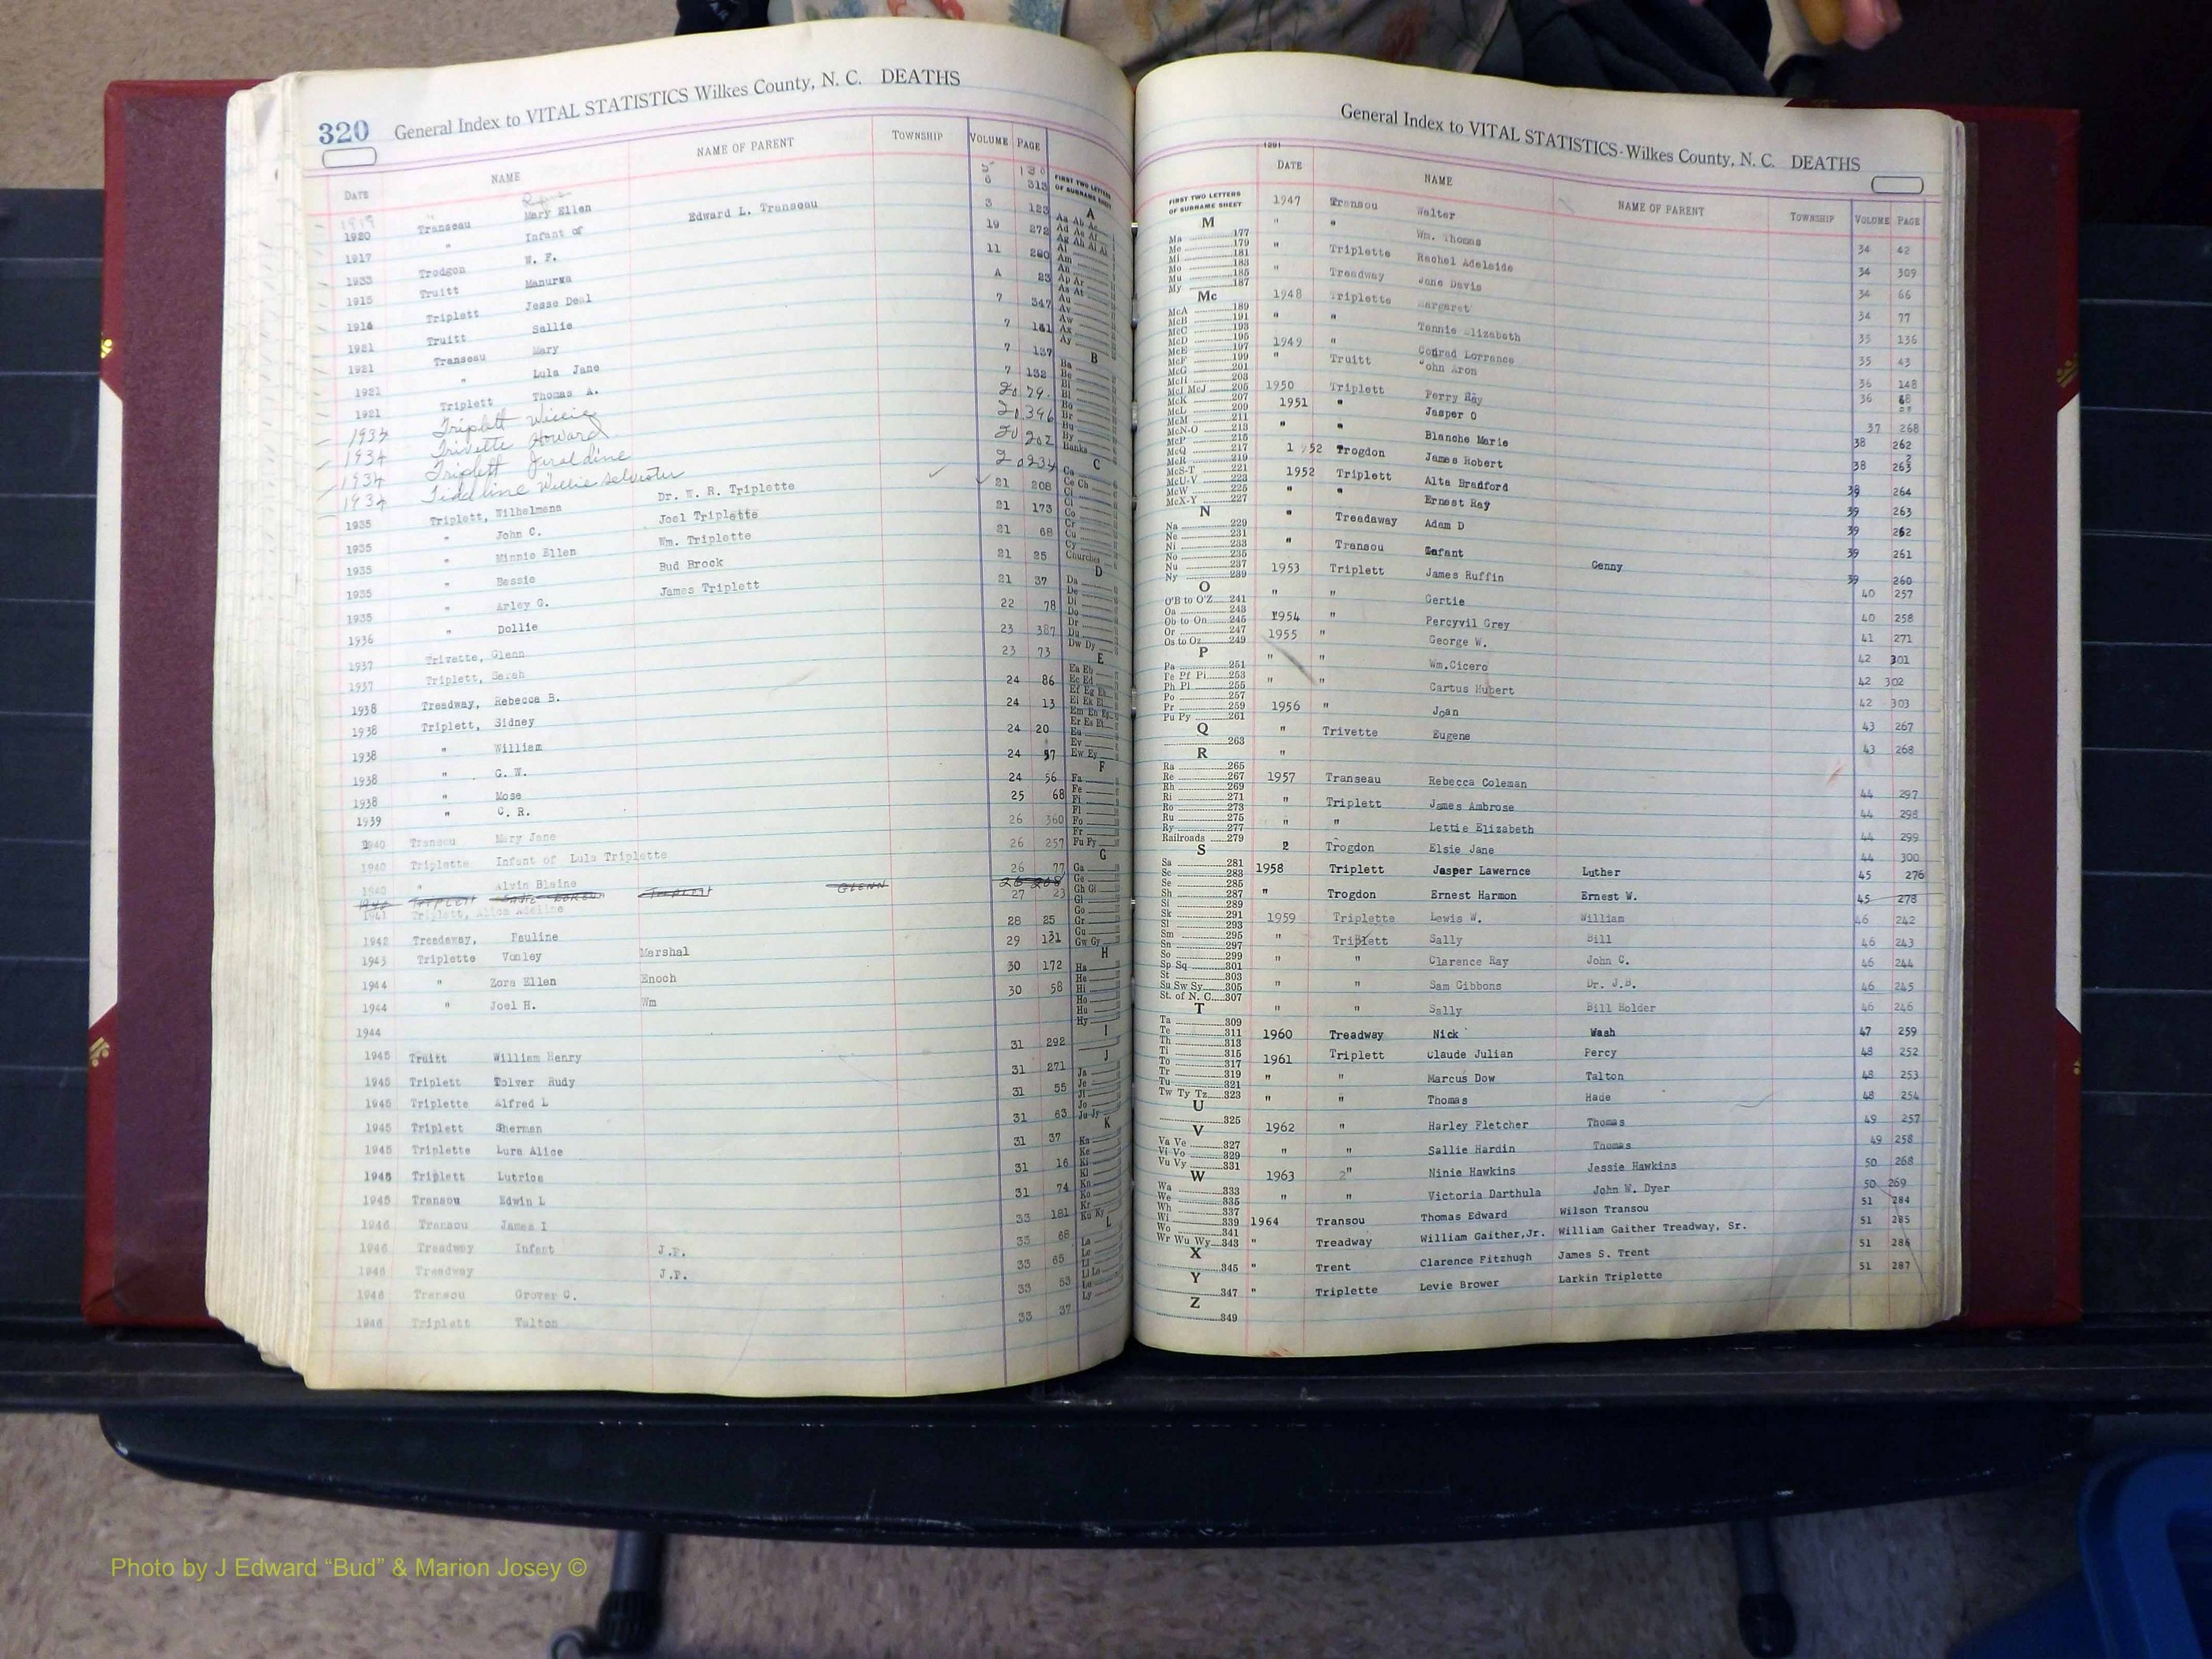 320 General Index to VITAL STATISTICS Wilkes County, N. C. DEATHS
DATE NAME NAME OF PARENT TOWNSHIP VOLUME PAGE
1919 Transeau Mary Ellen Edward L. Transeau 6 313
1920 " Infant of 3 123
1917 Trodgon W. F. 19 272
1933 Truitt Manurva 11 280
1915 Triplett Jesse Deal A 23
1914 Truitt Sallie 7 347
1921 Transeau Mary 7 181
1921 " Lula Jane 7 137
1921 Triplett Thomas A. 7 132
1921
1934 Triplett Willie 20 79
1934 Trivette Howard 20 396
1934 Triplett Jeraldine 20 202
1934 Willie 20 234
1935 Triplett, Wilhelmena Dr. W. R. Triplette 21 208
1935 " John C. Joel Triplette 21 173
1935 " Minnie Ellen Wm. Triplette 21 68
1935 " Bessie Bud Brock 21 25
1935 " Arley G. James Triplett 21 37
1936 " Dollie 22 78
1937 Trivette, Glenn 23 387
1937 Triplett, Sarah 23 73
1938 Treadway, Rebecca B. 24 86
1938 Triplett, Sidney 24 13
1938 " William 24 20
1938 " G. W. 24 57
1938 " Mose 24 56
1939 " C. R. 25 68
1940 Transou Mary Jane 26 360
1940 Triplette Infant of Lula Triplette 26 257
1940 " Alvin Blaine 26 77
TRIPLETT SADIE TRIPLETT GLENN 26 208
1941 Triplett, Alice Adeline 27 23
1942 Treadaway, Pauline 28 25
1943 Triplette Vonley Marshal 29 121
1944 " Zora Ellen Enoch 30 172
1944 " Joel H. Wm 30 58
1944
1945 Truitt William Henry 31 292
1945 Triplett Tolver Rudy 31 271
1945 Triplette Alfred L 31 55
1945 Triplett Sherman 31 63
1945 Triplette Lura Alice 31 37
1945 Triplett Lutrica 31 16
1945 Transou Edwin L 31 74
1946 Transou James I 33 181
1946 Treadway Infant J.P. 33 68
1946 Treadway J.P. 33 65
1946 Transou Grover C. 33 53
1946 Triplett Talton 33 37
FIRST TWO LETTERS
OF SURNAME SHEET
A
Aa Ab Ac
Ad Ae Af
Ag Ah Ai Aj
Al
Am
An
Ap Ar
As At
Au
Av
Aw
Ax
Ay
B
Ba
Be
Bi
Bl
Bo
Br
Bu
By
Banks
C
Ca
Ce Ch
Ci
Cl
Co
Cr
Cu
Cy
Churches
D
Da
De
Di
Do
Dr
Du
Dw Dy
E
Ea Eb
Ec Ed
Ef Eg Eh
Ei Ek El
Em En Ep
Er Es Et
Eu
Ev
Ew Ey
F
Fa
Fe
Fi
Fl
Fo
Fr
Fu Fy
G
Ga
Ge
Gh Gi
Gl
Go
Gr
Gu
Gw Gy
H
Ha
He
Hi
Ho
Hu
Hy
I
J
Ja
Je
Ji
Jo
Ju Jy
K
Ka
Ke
Ki
Kl
Kn
Ko
Kr
Ku Ky
L
La
Le
Li
Ll Lo
Lu
Ly
General Index to VITAL STATISTICS-Wilkes County, N. C. DEATHS
FIRST TWO LETTERS
OF SURNAME SHEET
M
Ma 177
Me 179
Mi 181
Mo 183
Mu 185
My 187
Mc
McA 189
McB 191
McC 193
McD 195
McE 197
McF 199
McG 201
McH 203
McI McJ 205
McK 207
McL 209
McM 211
McN-O 213
McP 215
McQ 217
McR 219
McS-T 221
McU-V 223
McW 225
McX-Y 227
N
Na 229
Ne 231
Ni 233
No 235
Nu 237
Ny 239
O
O'B to O'Z 241
Oa 243
Ob to On 245
Or 247
Os to Oz 249
P
Pa 251
Pe Pf Pi 253
Ph Pl 255
Po 257
Pr 259
Pu Py 261
Q
263
R
Ra 265
Re 267
Rh 269
Ri 271
Ro 273
Ru 275
Ry 277
Railroads 279
S
Sa 281
Sc 283
Se 285
Sh 287
Si 289
Sk 291
Sl 293
Sm 295
Sn 297
So 299
Sp Sq 301
St 303
Su Sw Sy 305
St. of N. C. 307
T
Ta 309
Te 311
Th 313
Ti 315
To 317
Tr 319
Tu 321
Tw Ty Tz 323
U
325
V
Va Ve 327
Vi Vo 329
Vu Vy 331
W
Wa 333
We 335
Wh 337
Wi 339
Wo 341
Wr Wu Wy 343
X
345
Y
347
Z
349
DATE NAME NAME OF PARENT TOWNSHIP VOLUME PAGE
1947 Transou Walter 34 42
" " Wm. Thomas 34 309
" Triplette Rachel Adelaide 34 66
" Treadway Jane Davis 34 77
1948 Triplette Margaret 35 136
" " Tennie Elizabeth 35 43
1949 " Conrad Lorrance 36 148
" Truitt John Aron 36 68
1950 Triplett Perry Ray 37 268
1951 " Jasper O 38 262
" " Blanche Marie 38 263
1952 Trogdon James Robert 39 264
1952 Triplett Alta Bradford 39 263
" " Ernest Ray 39 262
" Treadaway Adam D 39 261
" Transou Infant Genny 39 260
1953 Triplett James Ruffin 40 257
" " Gertie 40 258
1954 " Percyvil Grey 41 271
1955 " George W. 42 301
" " Wm.Cicero 42 302
" " Cartus Hubert 42 303
1956 " Joan 43 267
" Trivette Eugene 43 268
"
1957 Transeau Rebecca Coleman 44 297
" Triplett James Ambrose 44 298
" " Lettie Elizabeth 44 299
2 Trogdon Elsie Jane 44 300
1958 Triplett Jasper Lawernce Luther 45 276
" Trogdon Ernest Harmon Ernest W. 45 278
1959 Triplette Lewis W. William 46 242
" Triplett Sally Bill 46 243
" " Clarence Ray John C. 46 244
" " Sam Gibbons Dr. J.B. 46 245
" " Sally Bill Holder 46 246
1960 Treadway Nick Wash 47 259
1961 Triplett Claude Julian Percy 48 252
" " Marcus Dow Talton 48 253
" " Thomas Hade 48 254
1962 " Harley Fletcher Thomas 49 257
" " Sallie Hardin Thomas 49 258
1963 2" Ninie Hawkins Jessie Hawkins 50 268
" " Victoria Darthula John W. Dyer 50 269
1964 Transou Thomas Edward Wilson Transou 51 284
" Treadway William Gaither,Jr. William Gaither Treadway, Sr. 51 285
" Trent Clarence Fitzhugh James S. Trent 51 286
" Triplette Levie Brower Larkin Triplette 51 287
Photo by J Edward “Bud” & Marion Josey ©